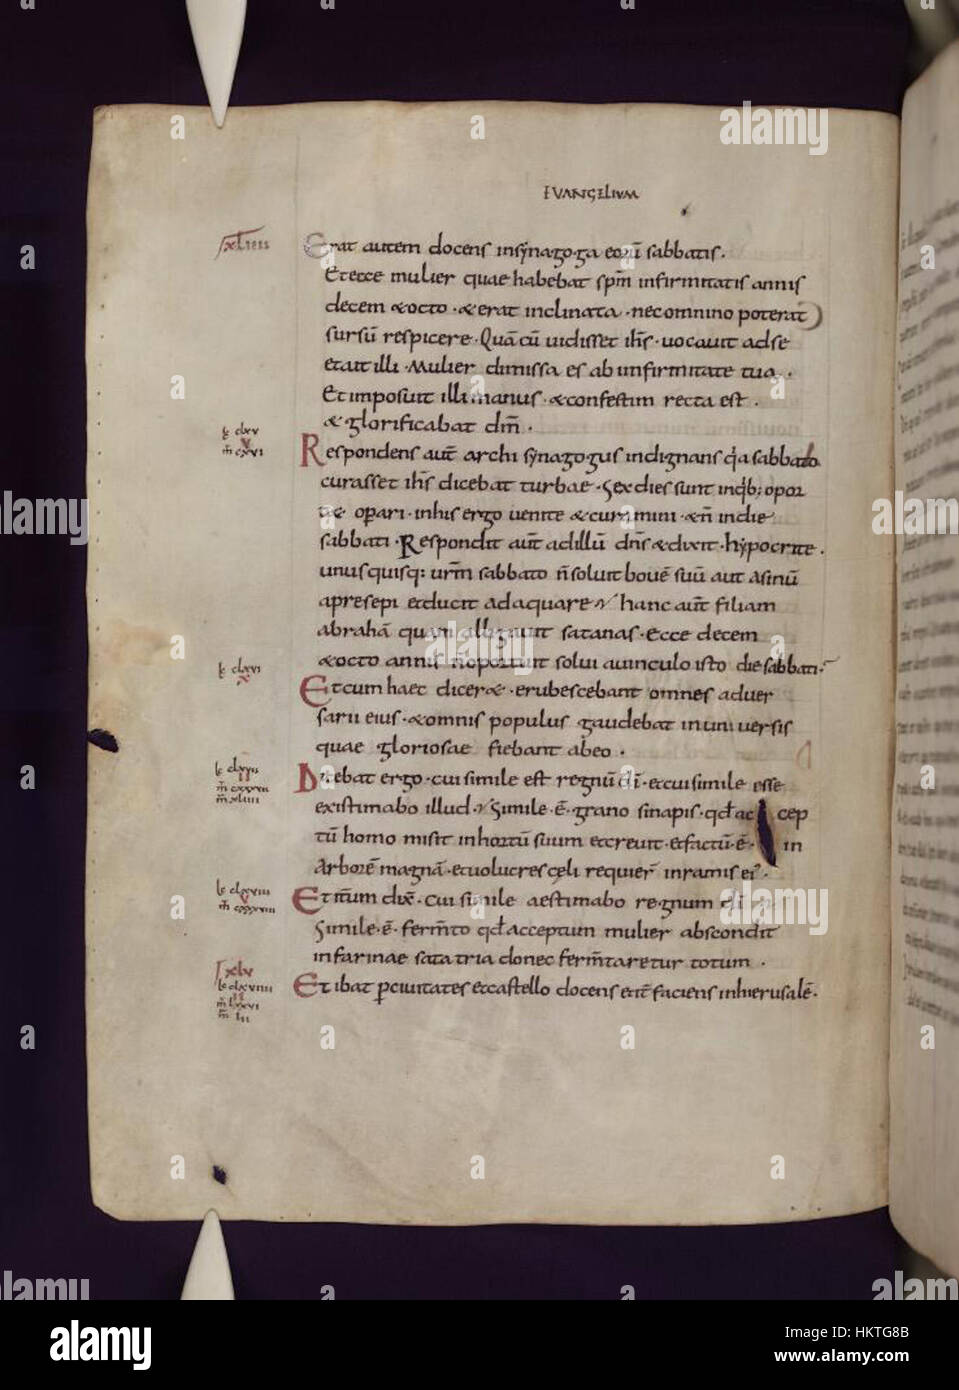 EVANGELIUM
xliiii
Erat autem docens insynagoga eorū sabbatis.
Etecce mulier quae habebat spm̄ infirmitatis annis
decem &octo · &erat inclinata · necomnino poterat
sursū respicere · Quā cū uidisset ihs̄ · uocauit adse
etait illi · Mulier dimissa es ab infirmitate tua ·
Et imposuit illi manus · &confestim recta est ·
& glorificabat dm̄ ·
Respondens aut̄ archi synagogus indignans qia sabbato
curasset ihs̄ dicebat turbae · Sex dies sunt inqib; opor
t& opari · inhis ergo uenite &curamini · &n̄ indie
sabbati · Respondit aut̄ adillū dn̄s &dixit · hypocrite ·
unus quisq: urm̄ sabbato n̄ soluit bouē suū aut asinū
apresepi etducit adaquare hanc aut̄ filiam
abrahā quam alligauit satanas · Ecce decem
&octo annis n̄oportuit solui auinculo isto diesabbati ·
Etcum haec dicer& · erubescebant omnes aduer
sarii eius · &omnis populus gaudebat inuniuersis
quae gloriosae fiebant abeo ·
Dicebat ergo · cui simile est regnū dī · etcui simile esse
existimabo illud · Simile · ē · grano sinapis · qđ ac cep
tū homo misit inhortū suum etcreuit · etfactū · ē · in
arborē magnā · etuolucres celi requier̄ inramis ei'·
Et itm̄um dix̄ · cui simile aestimabo regnum dī
Simile · ē · ferm̄to qđ acceptum mulier abscondit
infarinae sata tria donec ferm̄taretur totum ·
Et ibat p̄ciuitates etcastello docens et iter̄ faciens inhierusalē ·
alamy
Image ID: HKTG8B
www.alamy.com